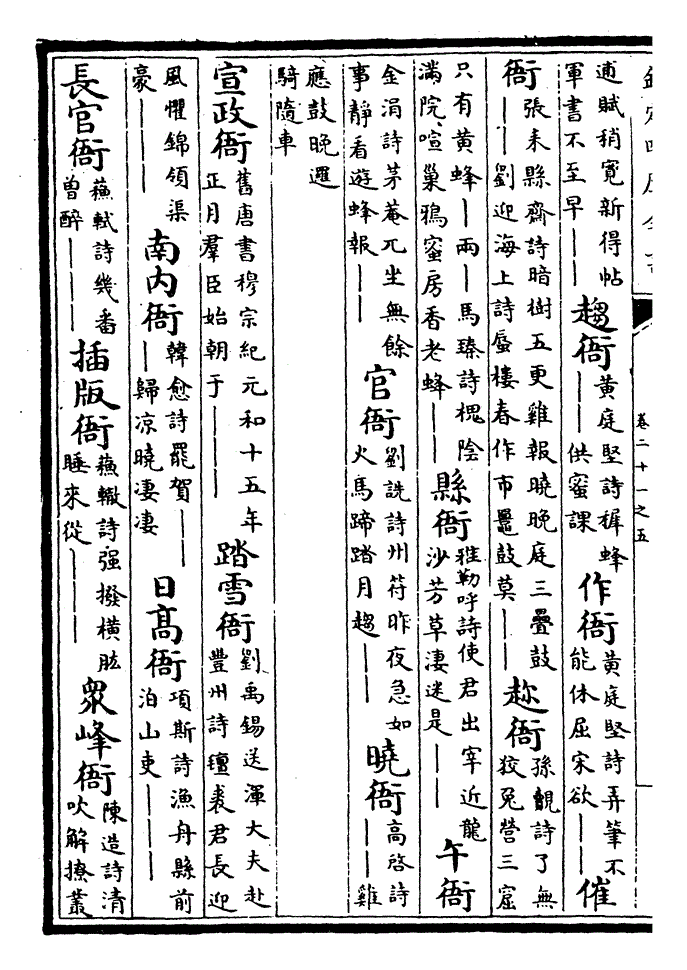 欽定四庫全書
卷二十一之五
逋賦稍寬新得帖軍書不至早——趨衙黄庭堅詩穉蜂——供蜜課作衙黄庭堅詩弄筆不能休屈宋欲——催
衙張耒縣齋詩暗樹五更雞報曉晚庭三疊鼓——劉迎海上詩蜃樓春作市鼉鼓莫——趂衙孫覿詩了無狡兔營三窟
只有黄蜂—兩—馬臻詩槐陰滿院喧巢鴉蜜房香老蜂——縣衙雅勒呼詩使君出宰近龍沙芳草凄迷是——午衙
金涓詩茅菴兀坐無餘事靜看遊蜂報——官衙劉詵詩州符昨夜急如火馬蹄踏月趨——曉衙高啓詩——雞
應鼓晚邏騎隨車
宣政衙舊唐書穆宗紀元和十五年正月羣臣始朝于———踏雪衙劉禹錫送渾大夫赴豐州詩氊裘君長迎
風懼錦領渠豪———南内衙韓愈詩罷賀———歸凉曉凄凄日髙衙項斯詩漁舟縣前泊山吏———
長官衙蘇軾詩幾番曽醉———插版衙蘇轍詩强撥横肱睡來從———衆峰衙陳造詩清吹解撩叢